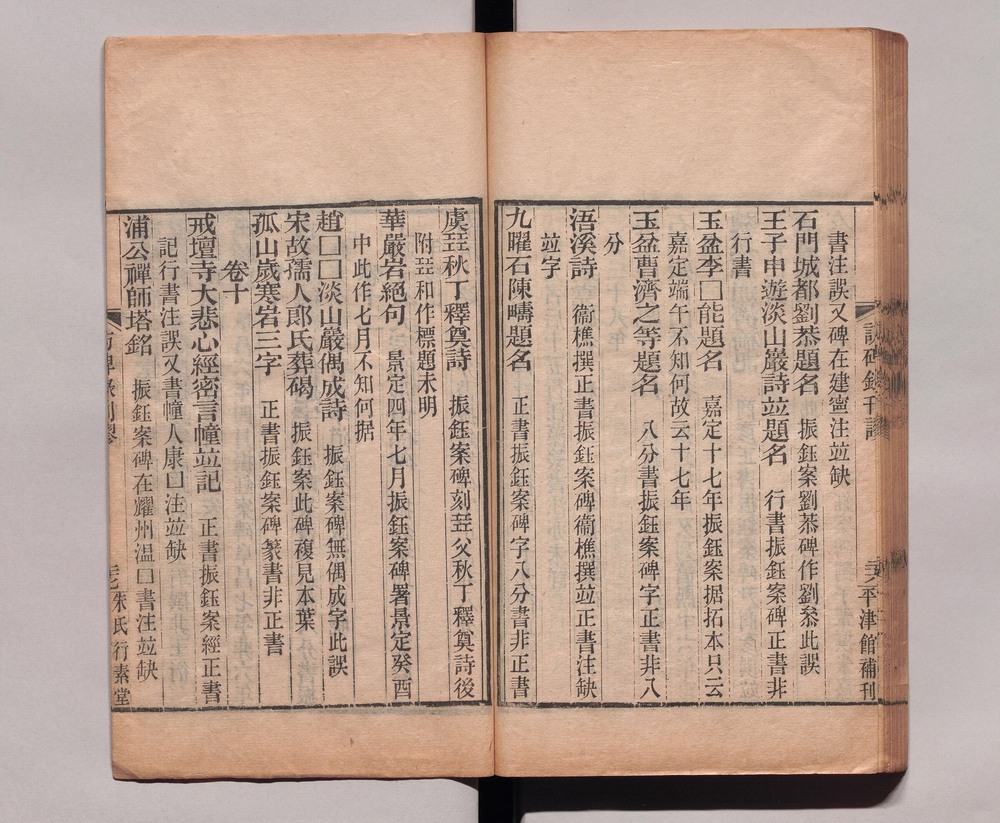 訪碑錄刊謬
平津館補刊
書注誤又碑在建寧注竝缺
石門城都劉㳟題名 振鈺案劉㳟碑作劉叅此誤
王子申遊淡山巖詩竝題名 行書振鈺案碑正書非
行書
玉盆李□能題名 嘉定十七年振鈺案据拓本只云
嘉定端午不知何故云十七年
玉盆曹濟之等題名 八分書振鈺案碑字正書非八
分
浯溪詩 衞樵撰正書振鈺案碑衞樵撰竝正書注缺
竝字
九曜石陳疇題名 正書振鈺案碑字八分書非正書
虞䇓秋丁釋奠詩 振鈺案碑刻䇓父秋丁釋奠詩後
附䇓和作標題未明
華嚴岩絕句 景定四年七月振鈺案碑署景定癸酉
中此作七月不知何据
趙□□淡山巖偶成詩 振鈺案碑無偶成字此誤
宋故孺人郎氏葬碣 振鈺案此碑複見本葉
孤山歲寒岩三字 正書振鈺案碑篆書非正書
卷十
戒壇寺大悲心經密言幢竝記 正書振鈺案經正書
記行書注誤又書幢人康□注竝缺
浦公禪師塔銘 振鈺案碑在耀州溫□書注竝缺
朱氏行素堂